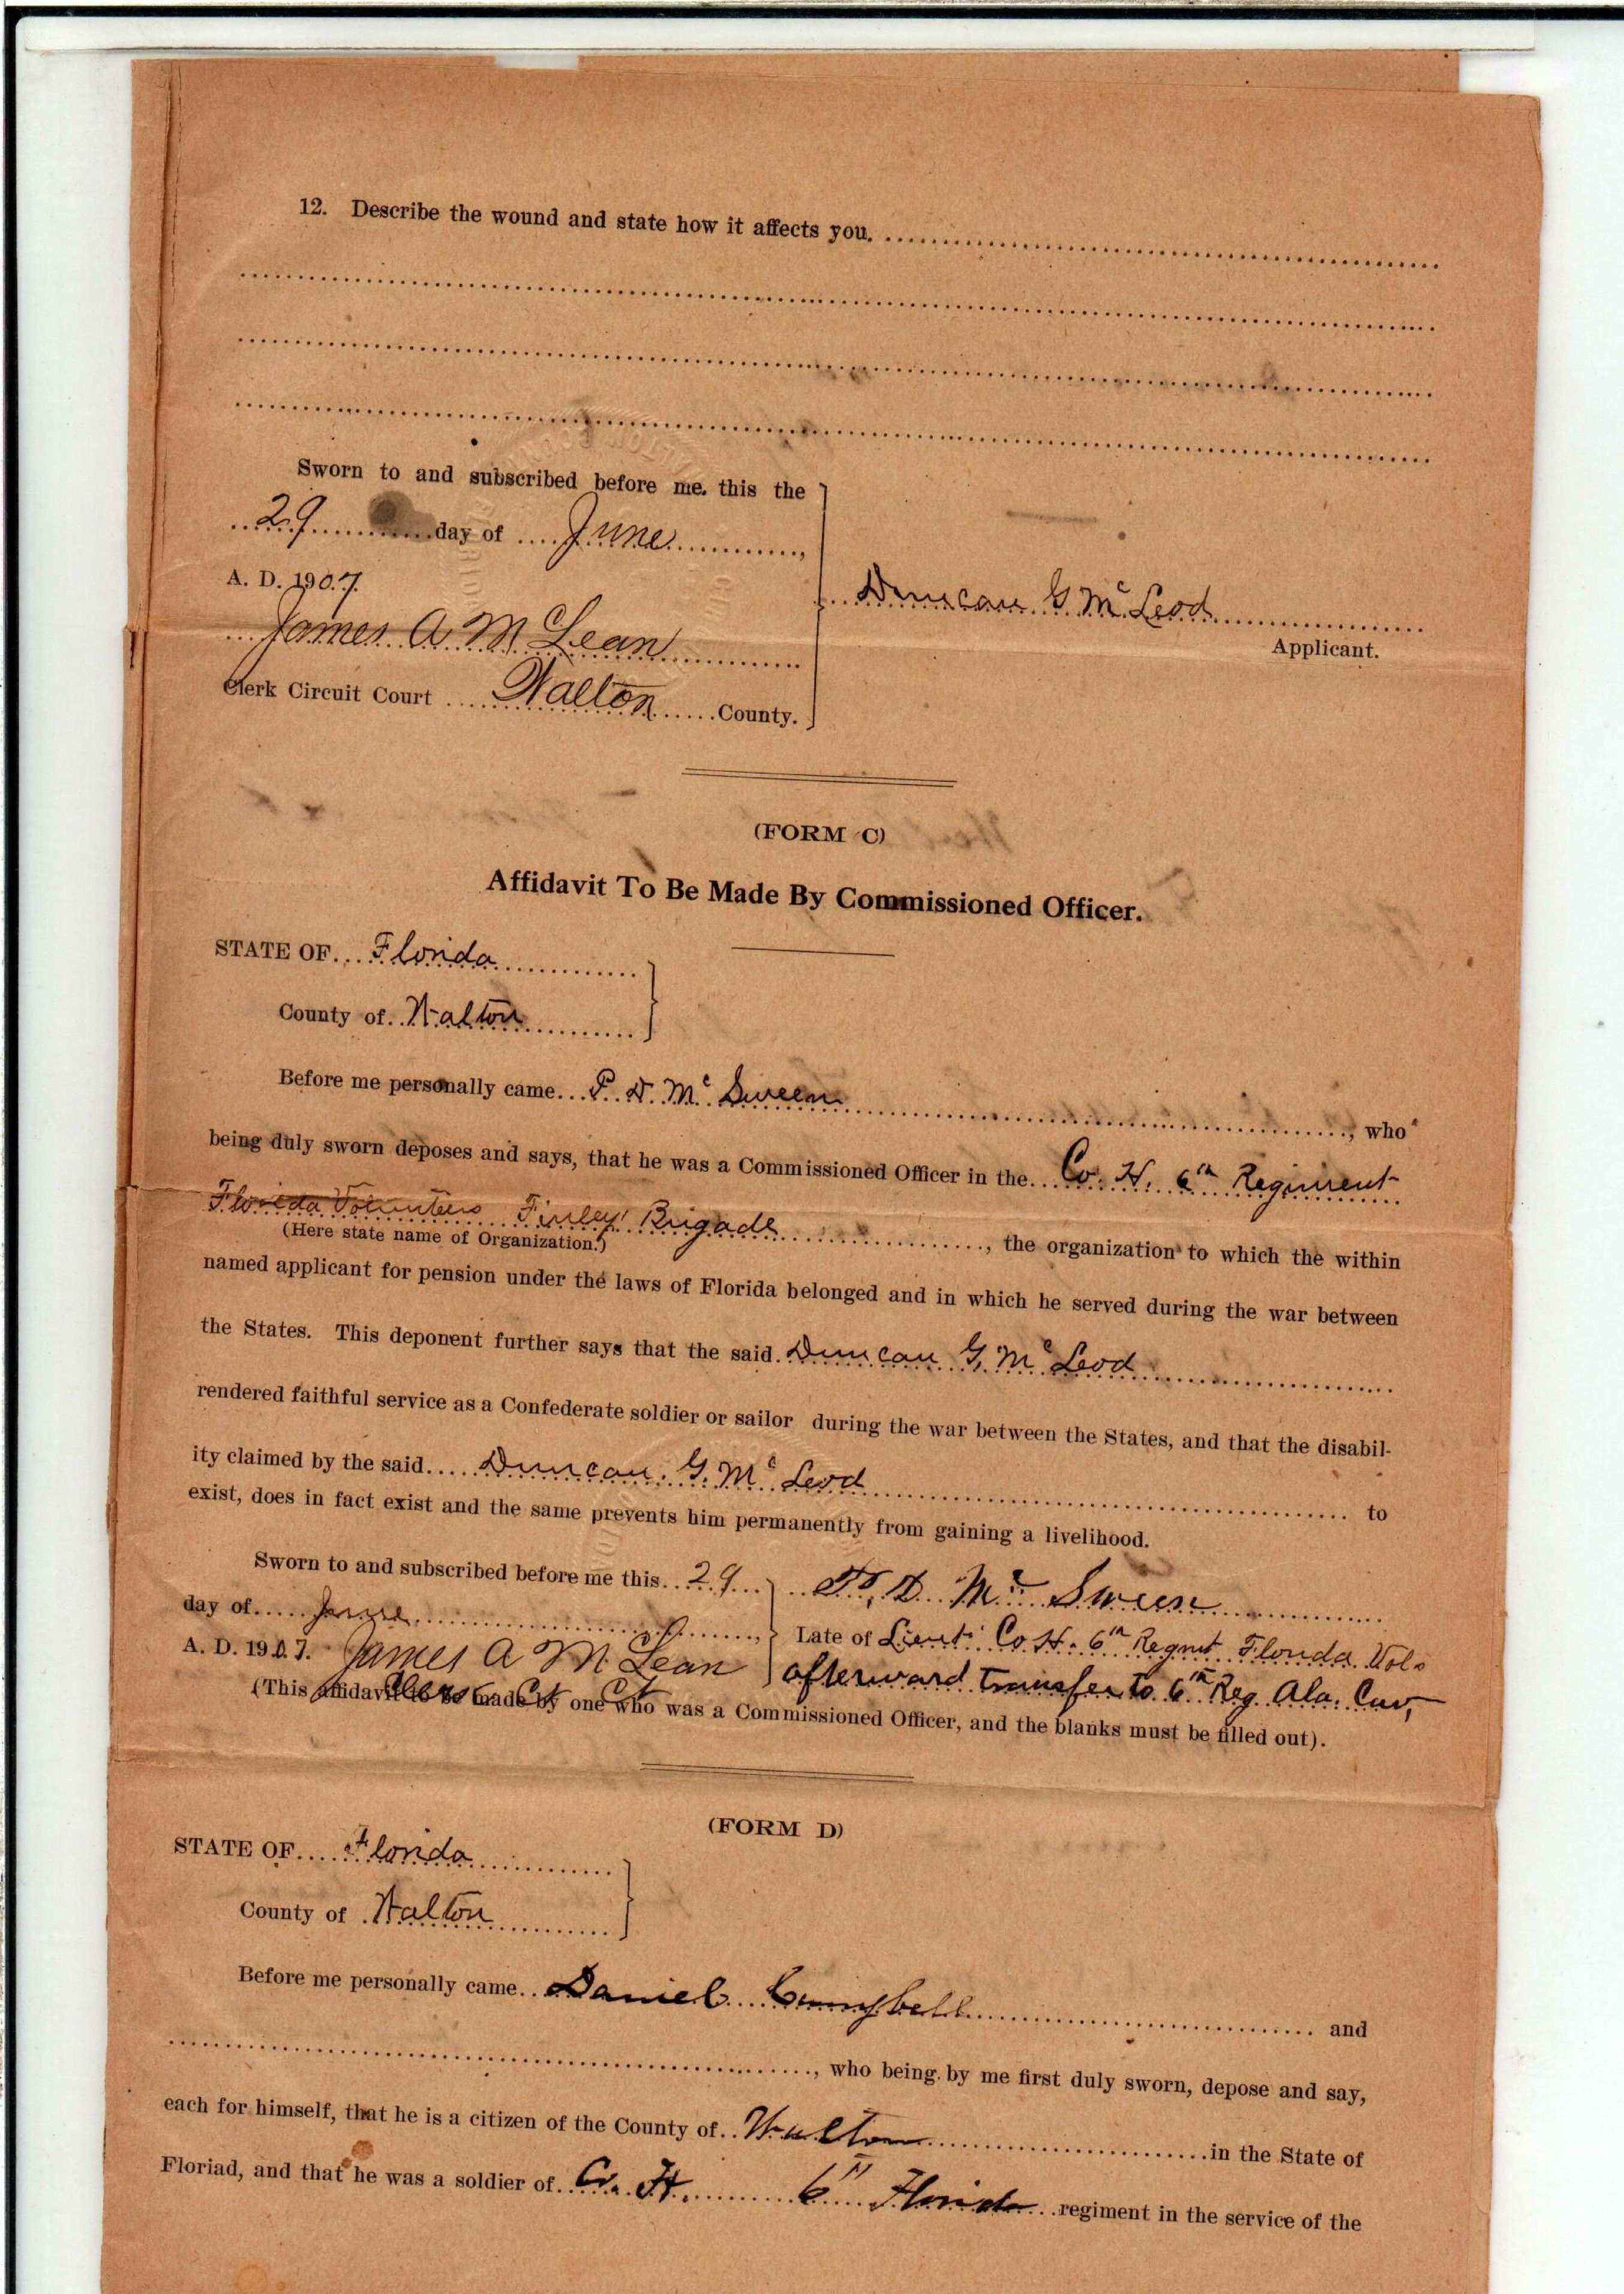 12. Describe the wound and state how it affects you.
Sworn to and subscribed before me. this the
29 day of June,
A. D. 1907.
James A McLean
Clerk Circuit Court Walton County.
Duncan G McLeod
Applicant.
(FORM C)
Affidavit To Be Made By Commissioned Officer.
STATE OF Florida
County of Walton
Before me personally came P. D. McSween, who
being duly sworn deposes and says, that he was a Commissioned Officer in the Co. H. 6th Regiment
Florida Volunteers Finley' Brigade, the organization to which the within
(Here state name of Organization.)
named applicant for pension under the laws of Florida belonged and in which he served during the war between
the States. This deponent further says that the said Duncan G. McLeod
rendered faithful service as a Confederate soldier or sailor during the war between the States, and that the disabil-
ity claimed by the said Duncan. G. McLeod to
exist, does in fact exist and the same prevents him permanently from gaining a livelihood.
Sworn to and subscribed before me this 29
day of June,
A. D. 1907. James A McLean
Clerk Ct Ct
P. D. McSween
Late of Lieut. Co H. 6th Regmt Florida Vols
afterward transfer to 6th Reg. Ala. Cav,
(This affidavit to be made by one who was a Commissioned Officer, and the blanks must be filled out).
(FORM D)
STATE OF Florida
County of Walton
Before me personally came Daniel Campbell and
, who being by me first duly sworn, depose and say,
each for himself, that he is a citizen of the County of Walton in the State of
Floriad, and that he was a soldier of Co. H. 6" Florida regiment in the service of the